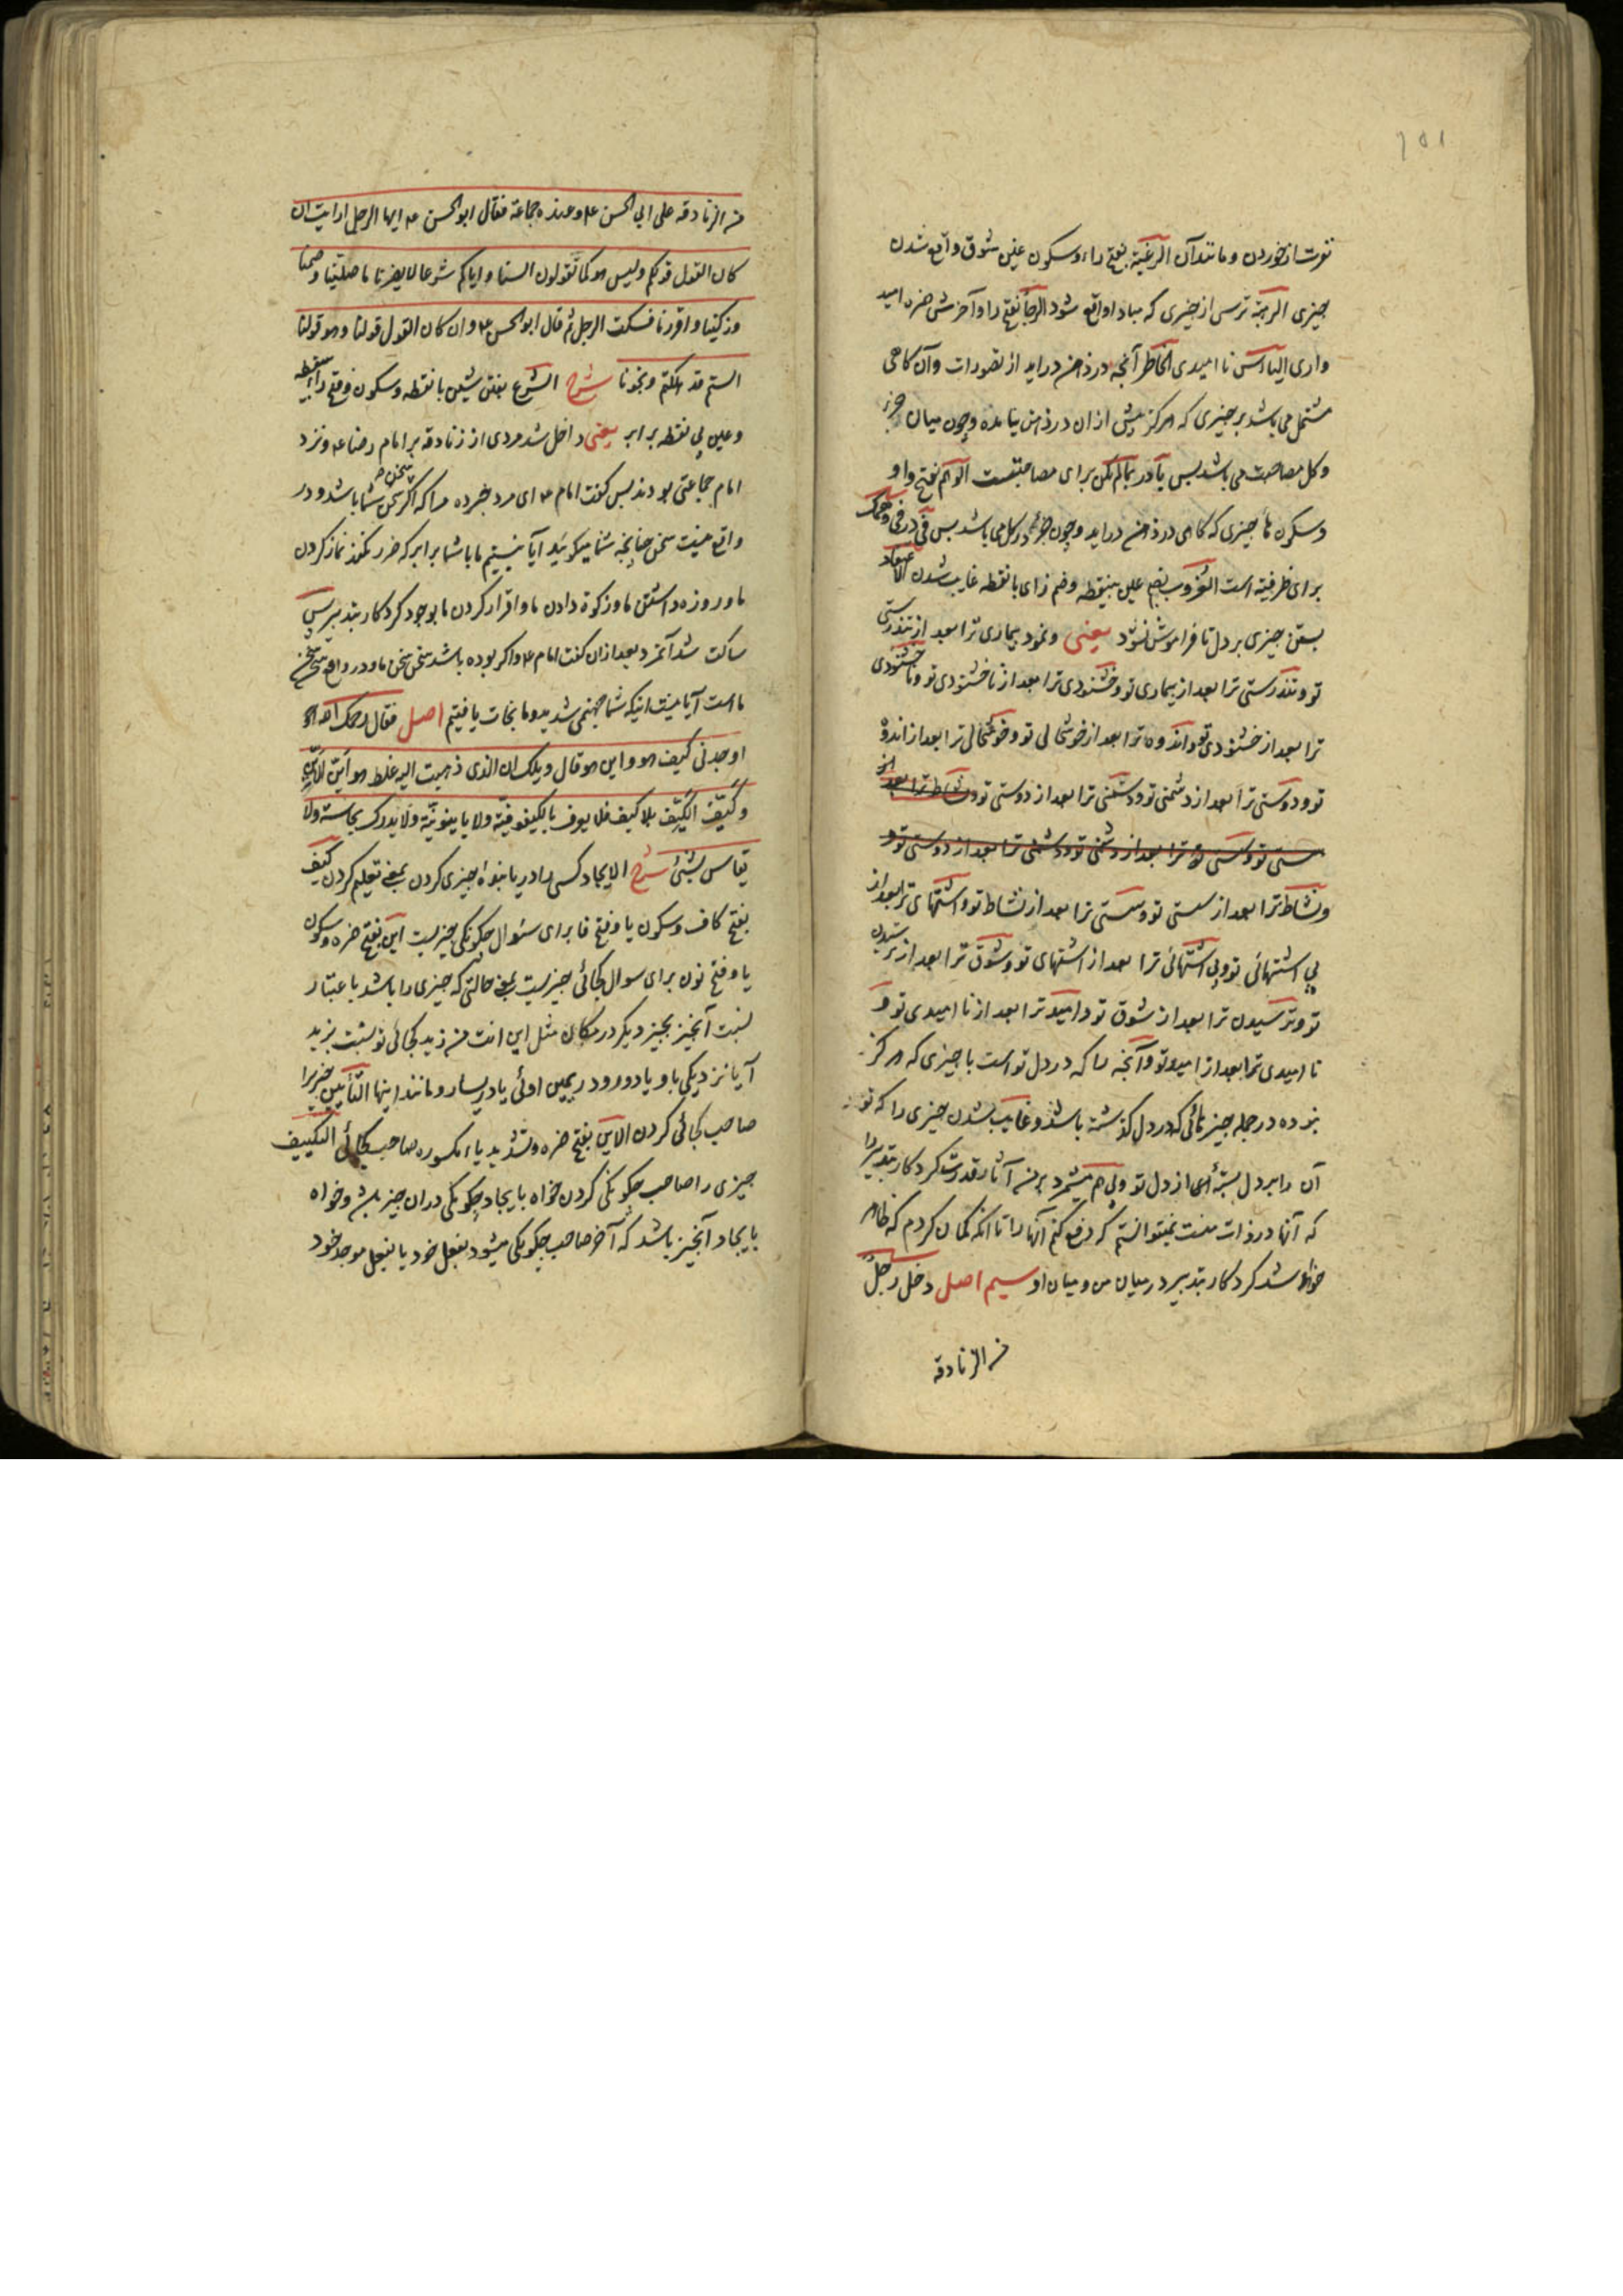 نفرت از خوردن و مانند آن الرغبة بفتح راء و سکون غین شوق واقع شدن
چیزی الرهبة ترس از چیزی که مبادا واقع شود الرجا بفتح را و آخرش همزه امید
واری الیاءس نا امیدی الخاطر آنچه در ذهن دراید از تصورات و آن کاهی
مشتمل می باشد بر چیزی که هرکز پیش ازان در ذهن نیامده و چون میان جزء
و کل مصاحبت می باشد پس با در بمالم یکن برای مصاحبتست الوهم بفتح واو
و سکون ها چیزی که کاهی در ذهن دراید و چون جزء در کل می باشد پس فی در فی وهمک
برای ظرفیة است العزوب بضم عین بینقطه و ضم زای با نقطه غایب شدن الاعتقاد
بستن چیزی بر دل تا فراموش نشود یعنی و نمود بیماری ترا بعد از تندرستی
تو و تندرستی ترا بعد از بیماری تو و خشنودی ترا بعد از ناخشنودی تو و ناخشنودی
ترا بعد از خشنودی تو و اندوه ترا بعد از خوشحالی تو و خوشحالی ترا بعد از اندوه
تو و دوستی ترا بعد از دشمنی تو و دشمنی ترا بعد از دوستی تو و نشاط ترا بعد از
سستی تو و سستی ترا بعد از دشمنی تو و دشمنی ترا بعد از دوستی تو و
و نشاط ترا بعد از سستی تو و سستی ترا بعد از نشاط تو و اشتهای ترا بعد از
بی اشتهائی تو و بی اشتهائی ترا بعد از اشتهای تو و شوق ترا بعد از ترسیدن
تو و ترسیدن ترا بعد از شوق تو و امید ترا بعد از نا امیدی تو و
نا امیدی ترا بعد از امید تو و آنچه را که در دل تو است با چیزی که هرکز
نبوده در جمله چیزهائی که در دل گذشته باشد و غایب شدن چیزی را که تو
آن را بر دل بسته از دل تو و پی هم میشمرد بر من آثار قدرت کردکار بتدبیر را
که آنها در ذات منست نمیتوانستم که دفع کنم آنها را تا انکه کمان کردم که ظاهر
خواهد شد کردکار بتدبیر در میان من و میان او سیم اصل دخل رجل
من الزنادقه
من الزنادقه علی ابی الحسن ع و عنده جماعة فقال ابو الحسن ع ایها الرجل ارایت ان
کان القول قولکم و لیس هو کما تقولون السنا و ایاکم شرعا لا یضرنا ما صلینا و صمنا
و زکینا و اقررنا فسکت الرجل ثم قال ابو الحسن ع و ان کان القول قولنا و هو قولنا
الستم قد هلکتم و نجونا شرح الشرع بفتح شین با نقطه و سکون و فتح راء بینقطه
و عین بی نقطه برابر یعنی داخل شد مردی از زنادقه بر امام رضا ع و نزد
امام جماعتی بودند پس کفت امام ع ای مرد خبر ده مرا که اکر سخن سخن شما باشد و در
واقع نیست سخن چنانچه شما میکوئید آیا نیستیم ما با شما برابر که ضرر نکند نماز کردن
ما و روزه داشتن ما و زکوة دادن ما و اقرار کردن ما بوجود کردکار بتدبیر پس
ساکت شد آنمرد بعد ازان کفت امام ع و اکر بوده باشد سخن سخن ما و در واقع سخن سخن
ما است آیا نیست اینکه شما جهنمی شدید و ما نجات یافتیم اصل فقال رحمک الله
اوجدنی کیف هو و این هو قال ویلک ان الذی ذهبت الیه غلط هو این الاین
و کیف الکیف بلا کیف فلا یعرف بالکیفوفیة و لا باینونیة و لا یدرک بحاسة و لا
یقاس بشئ شرح الایجاد کسی را دریابنده چیزی کردن بمعنی تعلیم کردن کیف
بفتح کاف و سکون یا و فتح فا برای سئوال چکونکی چیزیست این بفتح همزه و سکون
یا و فتح نون برای سوال کجائی چیزیست بمعنی حالتی که چیزی را باشد باعتبار
نسبت آنچیز بچیز دیکر در مکان مثل این انت من زید کجائی تو نسبت بزید
آیا نزدیکی باو یا دور و در یمین اوئی یا در یسار و مانند اینها التأیین چیز را
صاحب کجائی کردن الاین بفتح همزه و تشدید یاء مکسوره صاحب کجائی التکییف
چیزی را صاحب چکونکی کردن خواه بایجاد چکونکی دران چیز باشد و خواه
بایجاد آنچیز باشد که آخر صاحب چکونکی میشود بفعل خود یا بفعل موجد خود